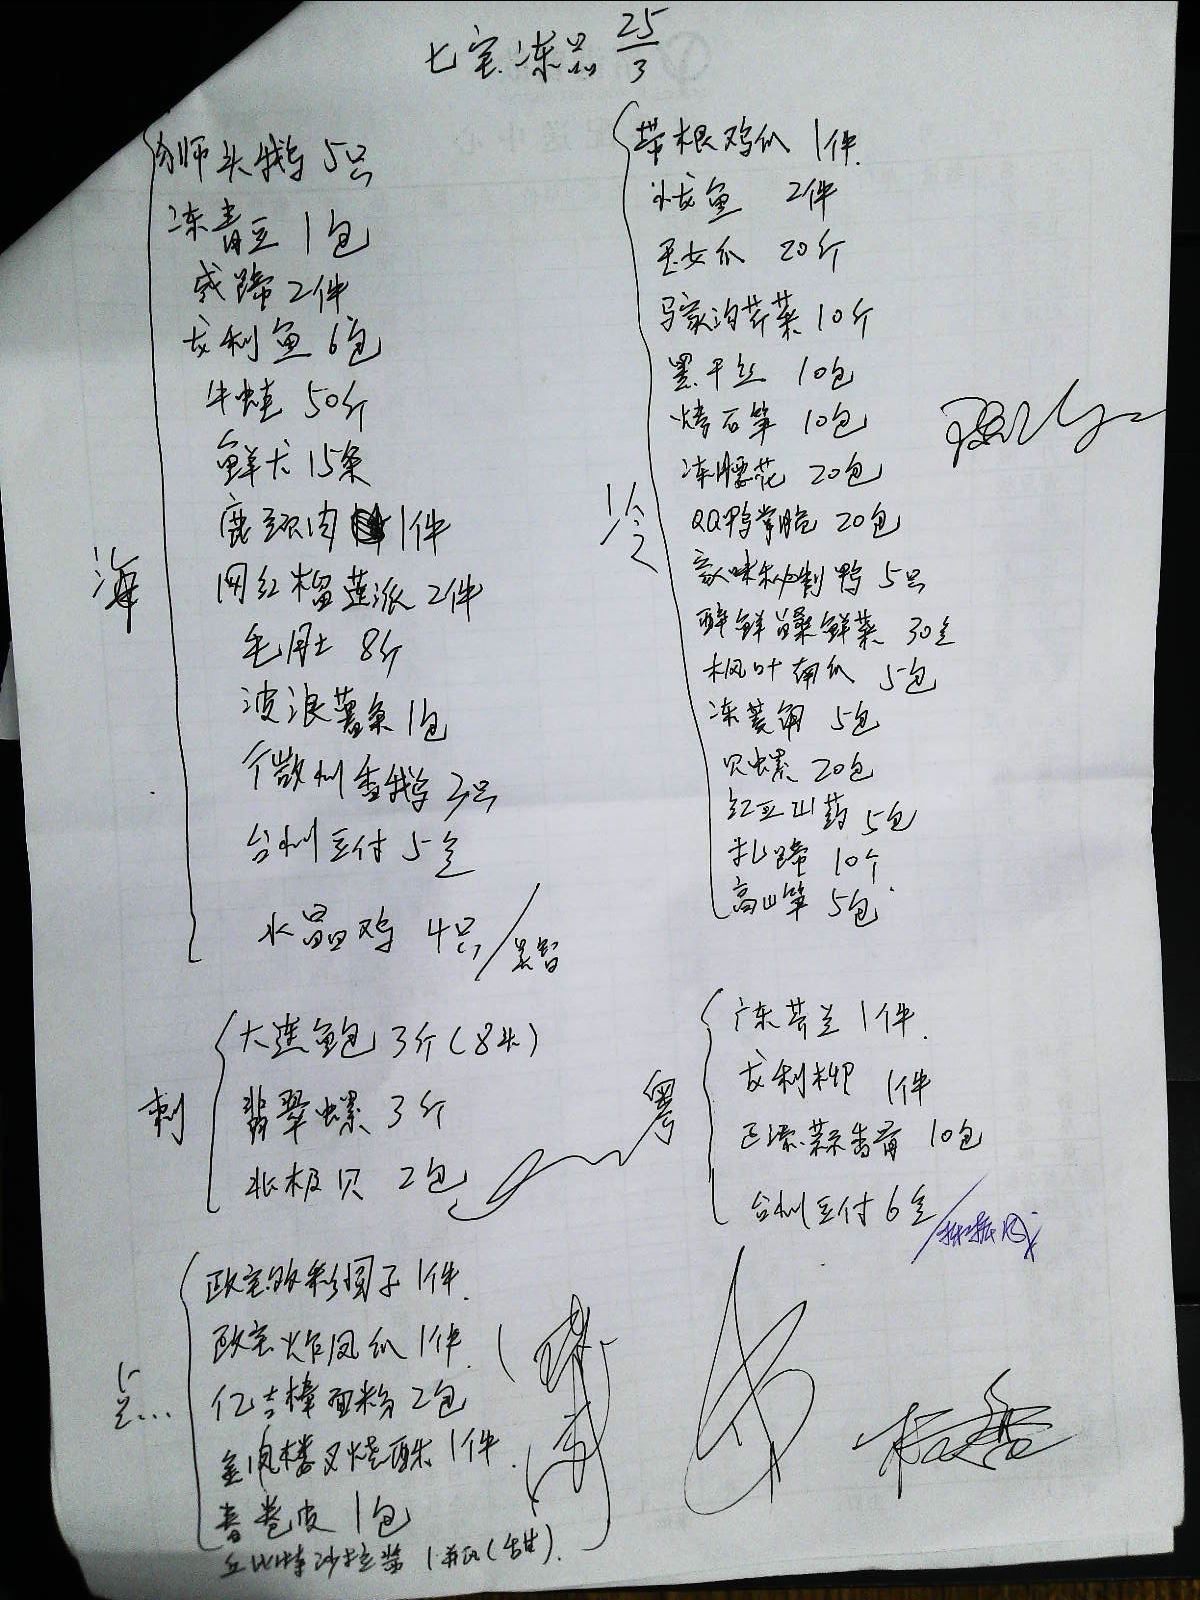 七宝冻品 25/3
狮头鹅 5只
冻青豆 1包
戚蹄 2件
龙利鱼 6包
牛蛙 50斤
鲜尤 15条
鹿颈肉 1件
网红榴莲派 2件
毛肚 8斤
波浪薯条 1包
个微州香鹅 3只
台州豆付 5盒
水晶鸡 4只
海
大连鲍 3斤(8头)
翡翠螺 3斤
北极贝 2包
刺
欧宝 粉圆子 1件
欧宝炸凤爪 1件
亿吉樟面粉 2包
金凤楼叉烧酥 1件
春卷皮 1包
丘比特沙拉酱 1瓶(生)
点...
带根鸡爪 1件
龙鱼 2件
玉女瓜 20斤
马家沟芹菜 10斤
黑干丝 10包
烤石笋 10包
冻腰花 20包
QQ鸭掌脆 20包
秘制鸭 5只
醉鲜 鲜菜 30盒
枫叶南瓜 5包
冻菱角 5包
贝螺 20包
红豆山药 5包
扎蹄 10个
高山笋 5包
冷
广东芥兰 1件
龙利柳 1件
蒜香骨 10包
台州豆付 6盒
粤